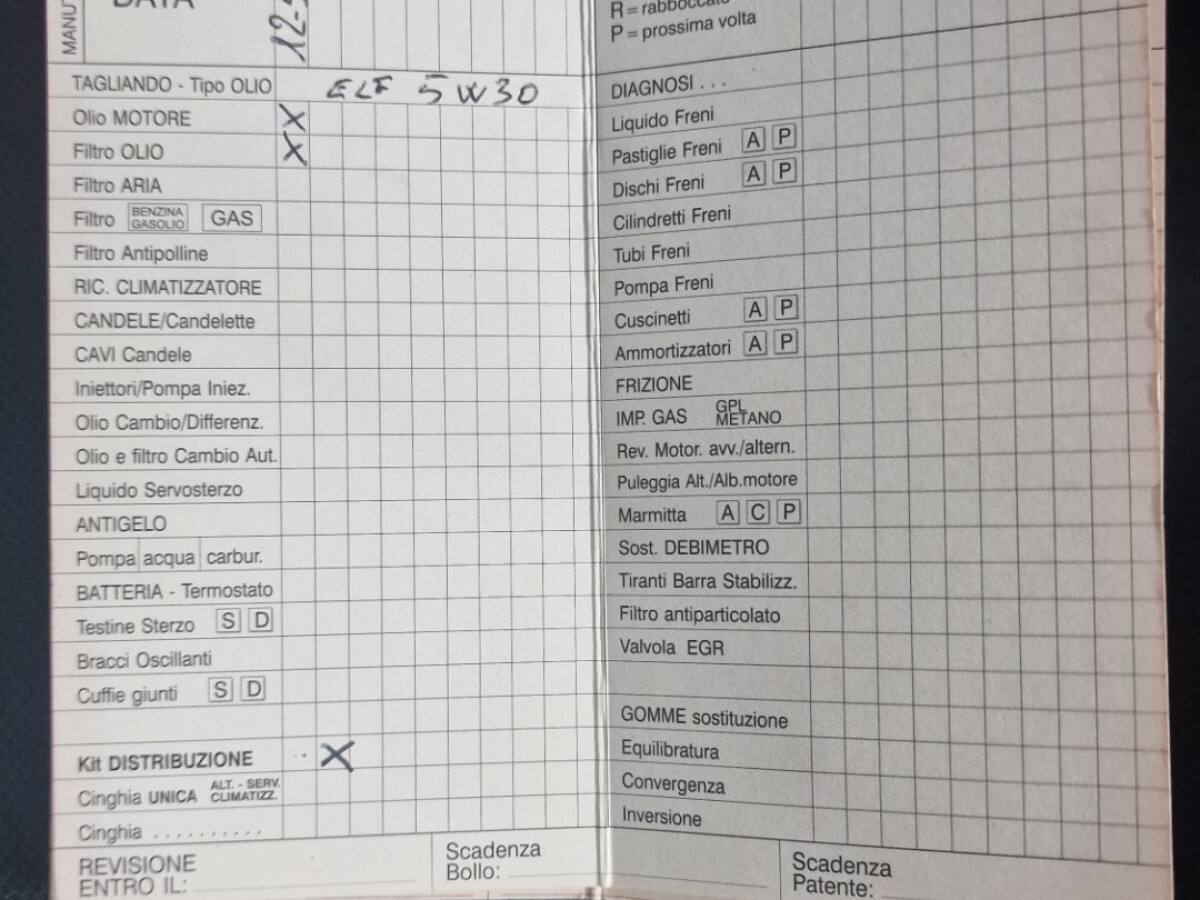 MANUT
DATA
12-
TAGLIANDO - Tipo OLIO ELF 5W30
Olio MOTORE X
Filtro OLIO X
Filtro ARIA
Filtro BENZINA GASOLIO GAS
Filtro Antipolline
RIC. CLIMATIZZATORE
CANDELE/Candelette
CAVI Candele
Iniettori/Pompa Iniez.
Olio Cambio/Differenz.
Olio e filtro Cambio Aut.
Liquido Servosterzo
ANTIGELO
Pompa acqua carbur.
BATTERIA - Termostato
Testine Sterzo S D
Bracci Oscillanti
Cuffie giunti S D
Kit DISTRIBUZIONE X
Cinghia UNICA ALT. - SERV. CLIMATIZZ.
Cinghia ..........
REVISIONE
ENTRO IL:
Scadenza
Bollo:
R = rabboccato
P = prossima volta
DIAGNOSI . . .
Liquido Freni
Pastiglie Freni A P
Dischi Freni A P
Cilindretti Freni
Tubi Freni
Pompa Freni
Cuscinetti A P
Ammortizzatori A P
FRIZIONE
IMP. GAS GPL METANO
Rev. Motor. avv./altern.
Puleggia Alt./Alb.motore
Marmitta A C P
Sost. DEBIMETRO
Tiranti Barra Stabilizz.
Filtro antiparticolato
Valvola EGR
GOMME sostituzione
Equilibratura
Convergenza
Inversione
Scadenza
Patente: